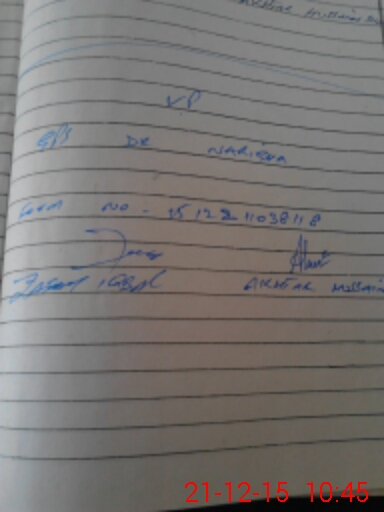 Akhtar Hussain
VP
GPS DK NARIENA
Form NO - 1512211038118
Zafar iqbal AKHTAR Hussain
21-12-15 10:45